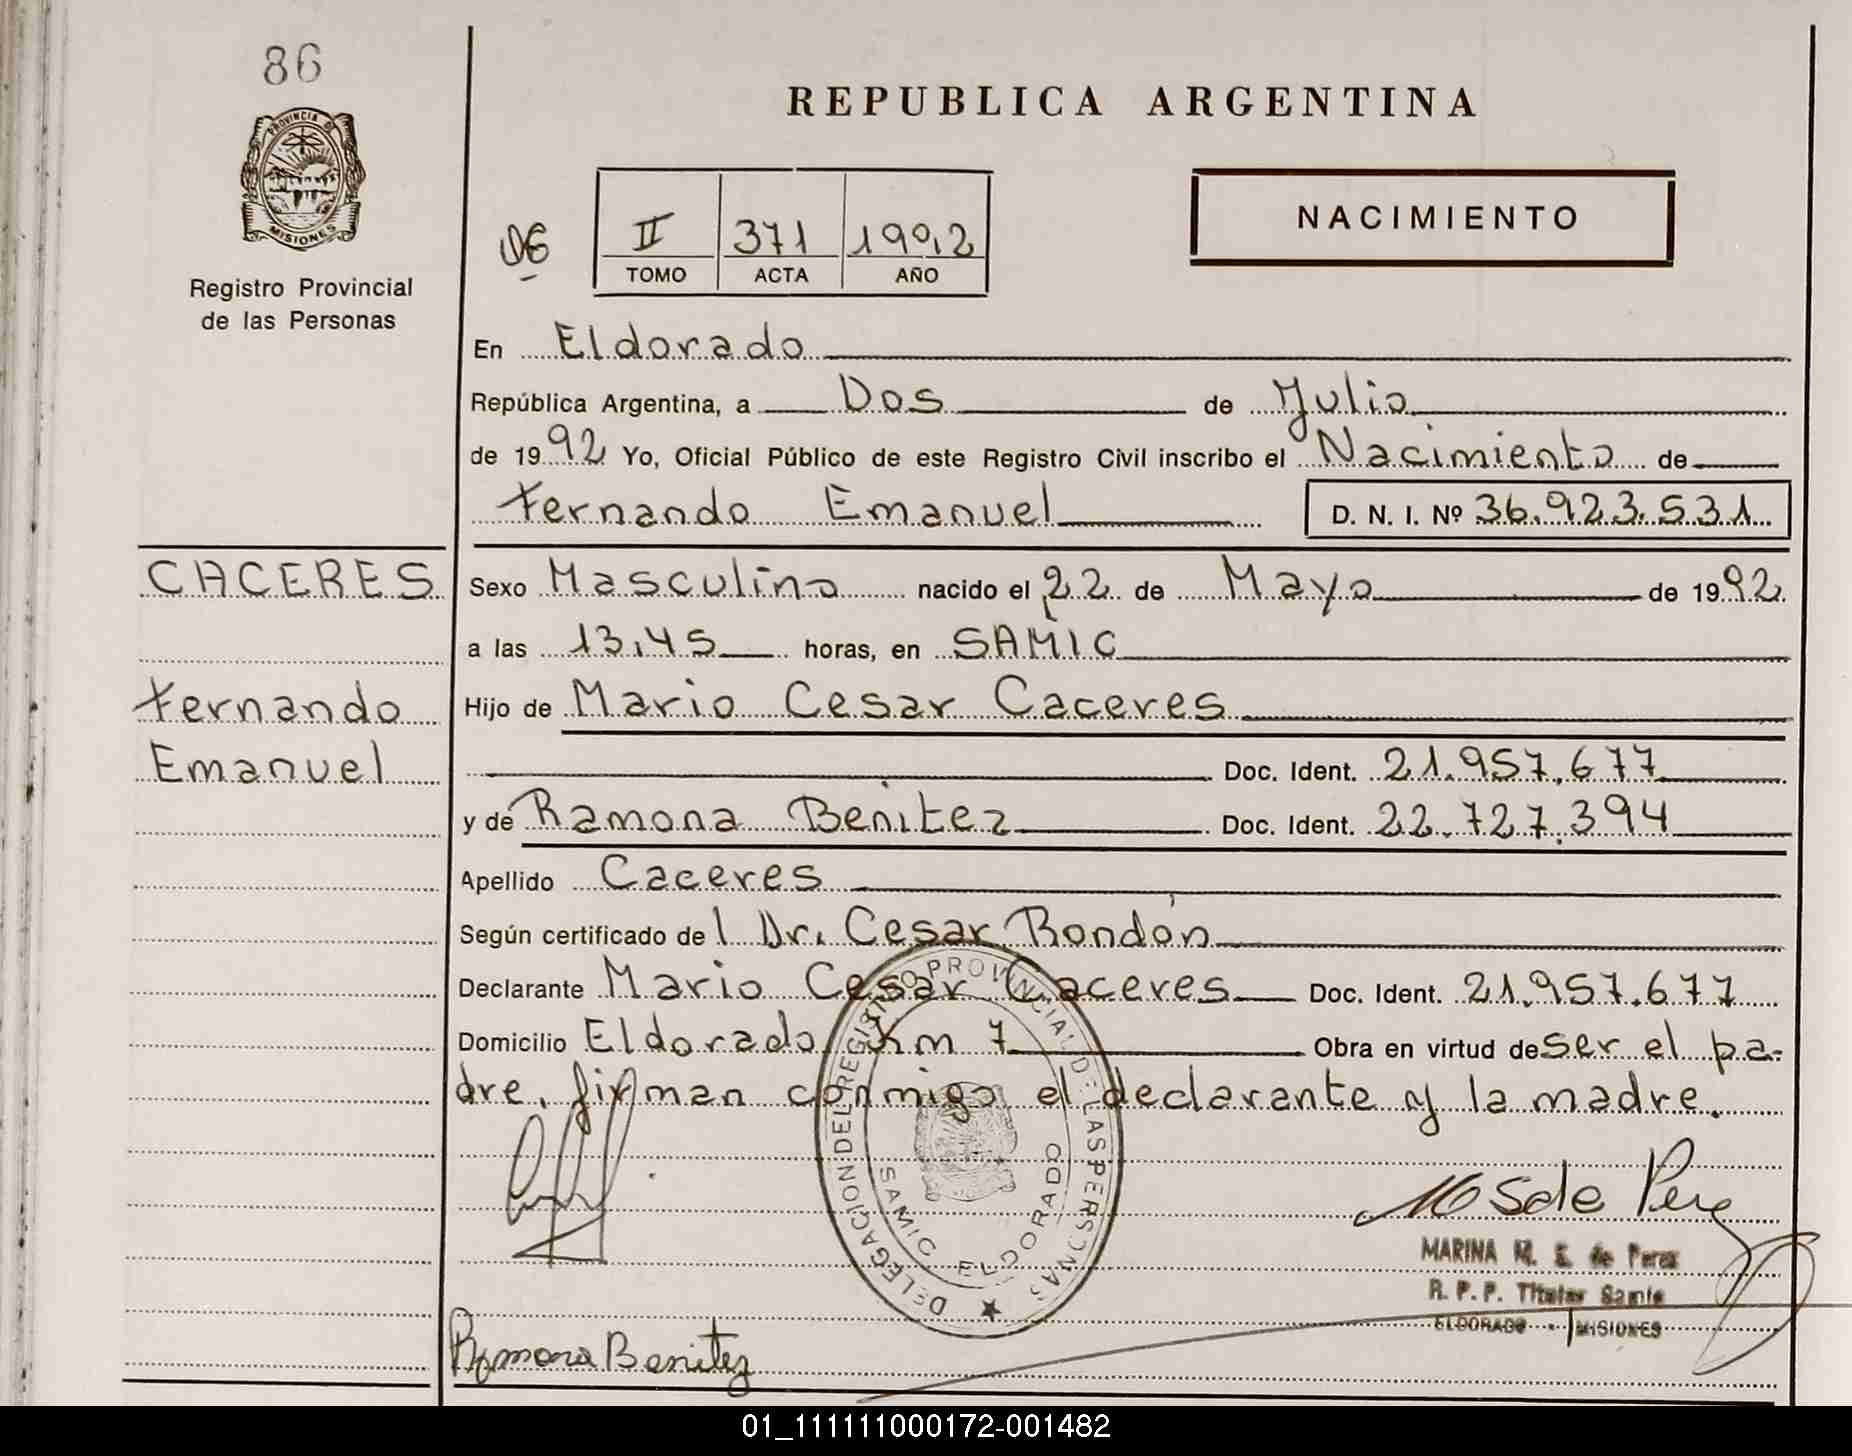 86
PROVINCIA DE
MISIONES
Registro Provincial
de las Personas
REPUBLICA ARGENTINA
NACIMIENTO
II 371 1992
TOMO ACTA AÑO
En Eldorado
República Argentina, a Dos de Julio
de 1992 Yo, Oficial Público de este Registro Civil inscribo el Nacimiento de
Fernando Emanuel D. N. I. Nº 36.923.531
CACERES
Fernando
Emanuel
Sexo Masculino nacido el 22 de Mayo de 1992
a las 13,45 horas, en SAMIC
Hijo de Mario Cesar Caceres
Doc. Ident. 21.957.677
y de Ramona Benitez Doc. Ident. 22.727.394
Apellido Caceres
Según certificado del Dr. Cesar Rondón
Declarante Mario Cesar Caceres Doc. Ident. 21.957.677
Domicilio Eldorado Km 7 Obra en virtud de ser el pa-
dre, firman conmigo el declarante y la madre.
DELEGACION DEL REGISTRO PROVINCIAL DE LAS PERSONAS
SAMIC ELDORADO
MARINA M. S. de Perez
R. P. P. Titular Samic
ELDORADO - MISIONES
Ramona Benitez
01_111111000172-001482